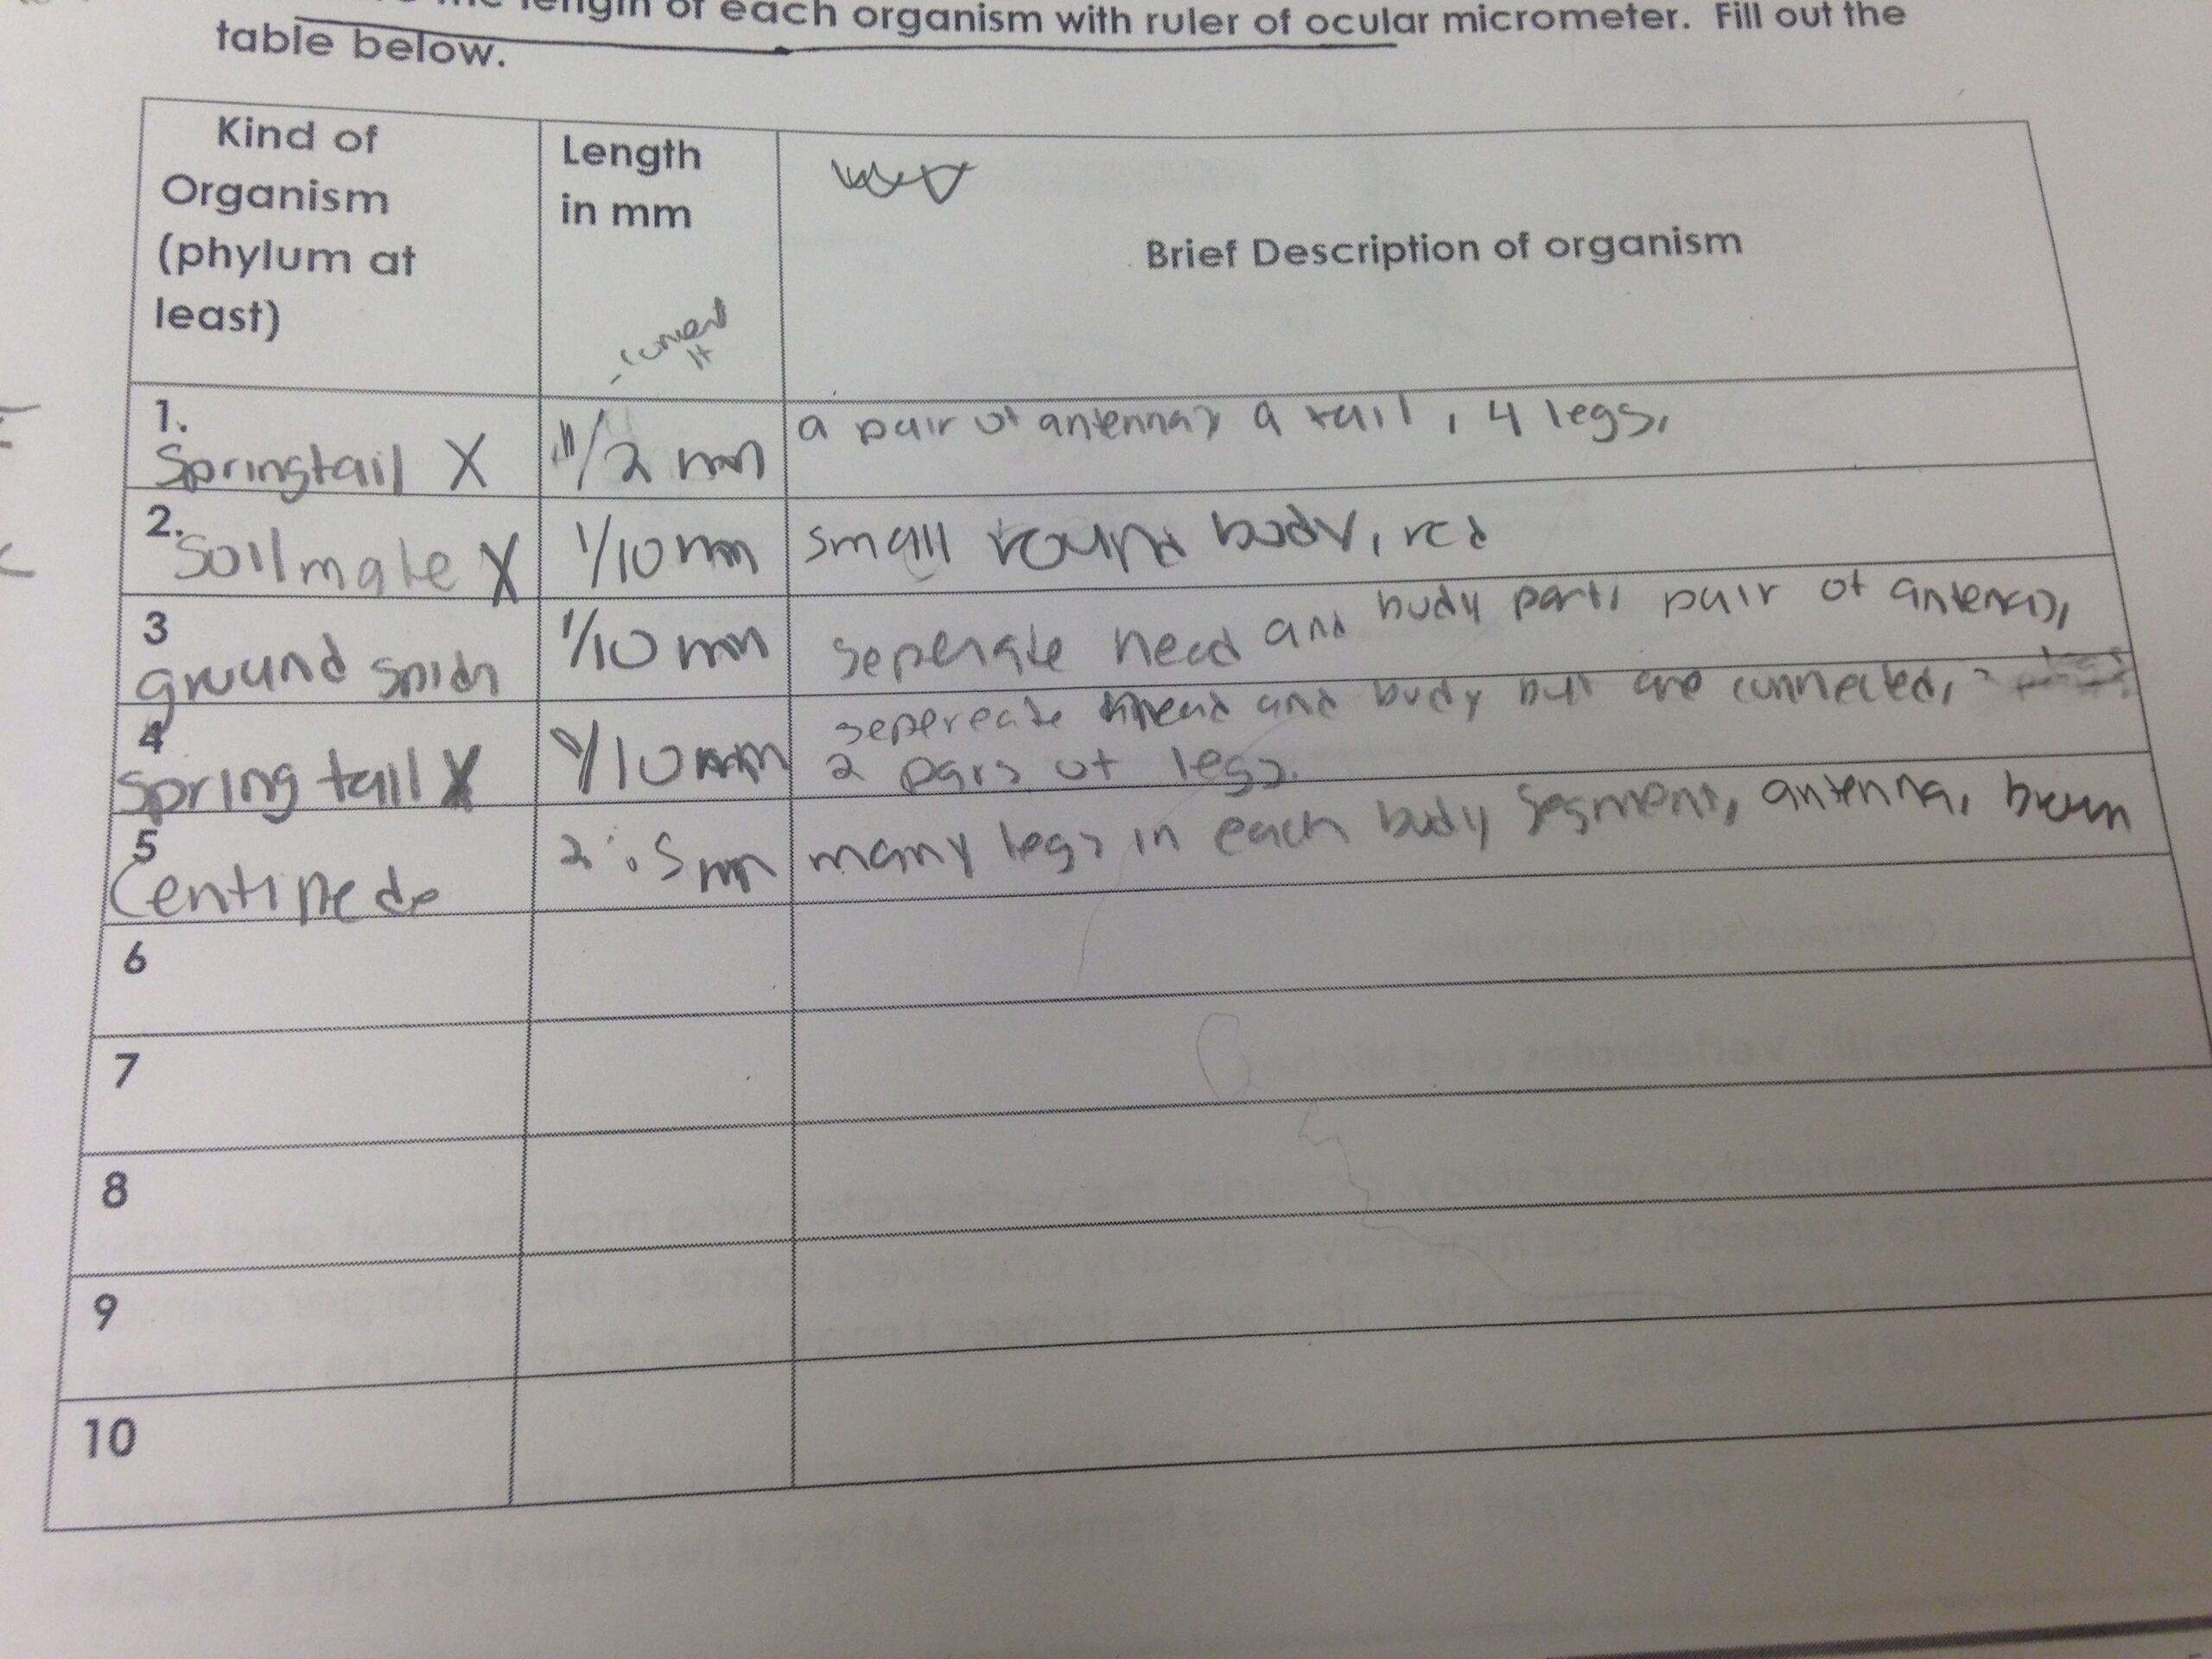 length of each organism with ruler of ocular micrometer. Fill out the
table below.
Kind of
Organism
(phylum at
least)
Length
in mm
- convert
it
Brief Description of organism
1.
Springtail X
1/2 mm
a pair of antennas a tail, 4 legs,
2.
Soilmate X
1/10 mm
small round body, red
3
ground spidr
1/10 mm
seperate head and body parts pair of antennas,
4
Spring tail X
/10 mm
sepereate head and body but are connected,
2 pars of legs.
5
Centipede
2.5 mm
many legs in each body segment, antenna, brown
6
7
8
9
10